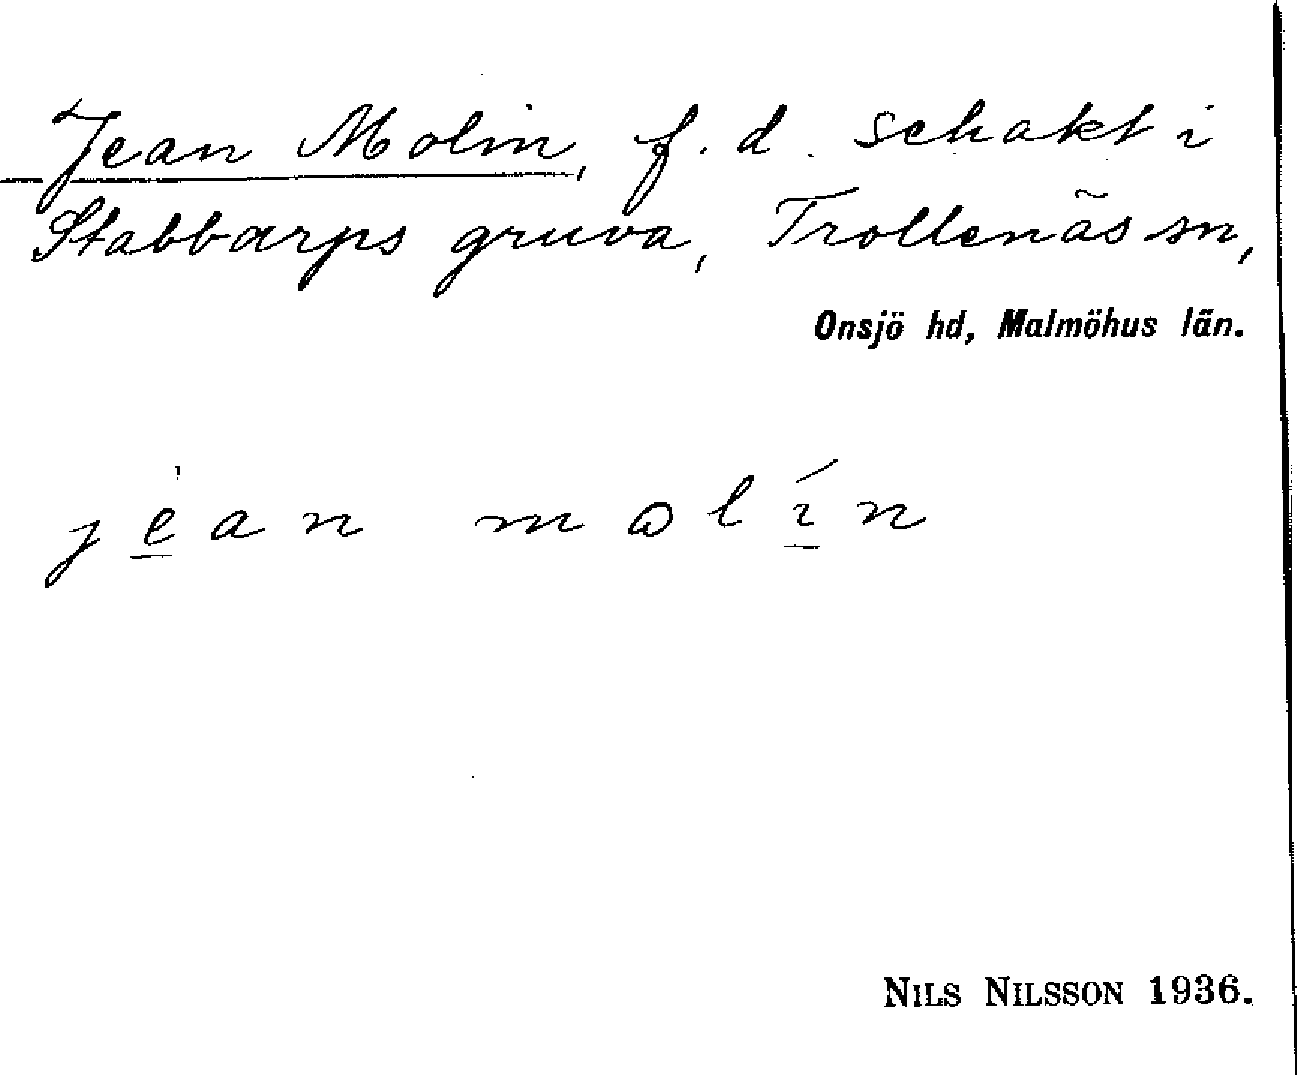 Jean Molin, f. d. schakt i
Stabbarps gruva, Trollenäs sn,
Onsjö hd, Malmöhus län.
jean molín
NILS NILSSON 1936.